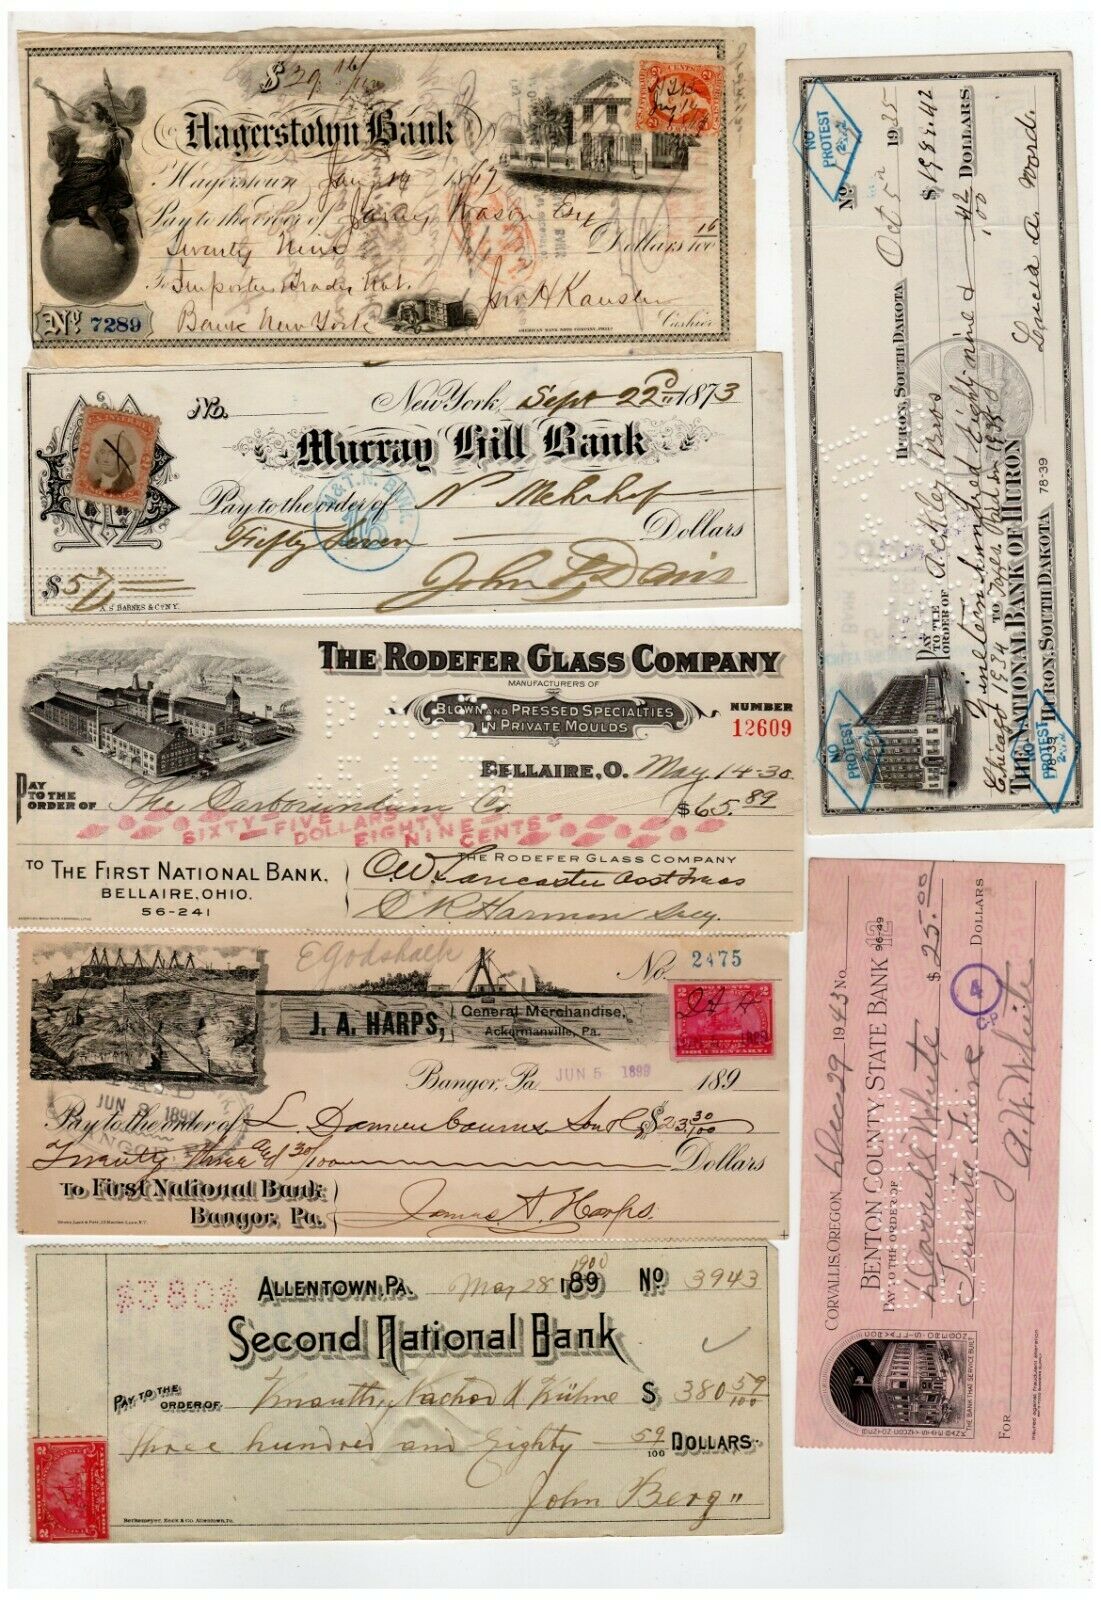 $29 16/100
Hagerstown Bank
Hagerstown Jany 14 1867
Pay to the order of James Wason Esq
Twenty Nine Dollars 16/100
To Importers & Traders Nat.
Bank New York
Cashier
No 7289
AMERICAN BANK NOTE COMPANY, PHILA.
No. New York, Sept 22d 1873
Murray Hill Bank
Pay to the order of N
Fifty Seven Dollars
$57
John Davis
A. S. BARNES & Co. N.Y.
THE RODEFER GLASS COMPANY
MANUFACTURERS OF
BLOWN AND PRESSED SPECIALTIES
IN PRIVATE MOULDS
NUMBER
12609
BELLAIRE, O. May 14-30
PAY TO THE ORDER OF The Carborundum Co. $65.89
SIXTY-FIVE DOLLARS EIGHTY NINE CENTS
TO THE FIRST NATIONAL BANK,
BELLAIRE, OHIO.
56-241
THE RODEFER GLASS COMPANY
O.W. Lancaster Asst Treas
D R Harmon Secy.
E Godshalk
No. 2475
J. A. HARPS,
General Merchandise,
Ackermanville, Pa.
2 2
DOCUMENTARY
Bangor, Pa. JUN 5 1899 189
JUN 5 1899
Pay to the order of L. $23 30/100
Twenty three and 30/100 Dollars
To First National Bank
Bangor, Pa.
James A. Harps.
$380$
ALLENTOWN, PA. Mar 28 1900 189 No 3943
Second National Bank
PAY TO THE ORDER OF Knauth, Nachod & Kühne $ 380 59/100
Three hundred and Eighty 59/100 DOLLARS
John Berg
Berkemeyer, Keck & Co. Allentown, Pa.
NO PROTEST
HURON, SOUTH DAKOTA Oct 5 1935 No
PAY TO THE ORDER OF Ackley Bros $1989.42
Nineteen hundred Eighty-nine & 42/100 DOLLARS
THE NATIONAL BANK OF HURON
78-39 HURON, SOUTH DAKOTA 78-39
NO PROTEST
NO PROTEST
Lucia A. Worde
CORVALLIS, OREGON, Dec 29 1943 No
BENTON COUNTY STATE BANK 96-49 12
PAY TO THE ORDER OF White $25.00
Twenty Five DOLLARS
FOR
A. W. White
THE BANK THAT SERVICE BUILT
CORVALLIS-OREGON